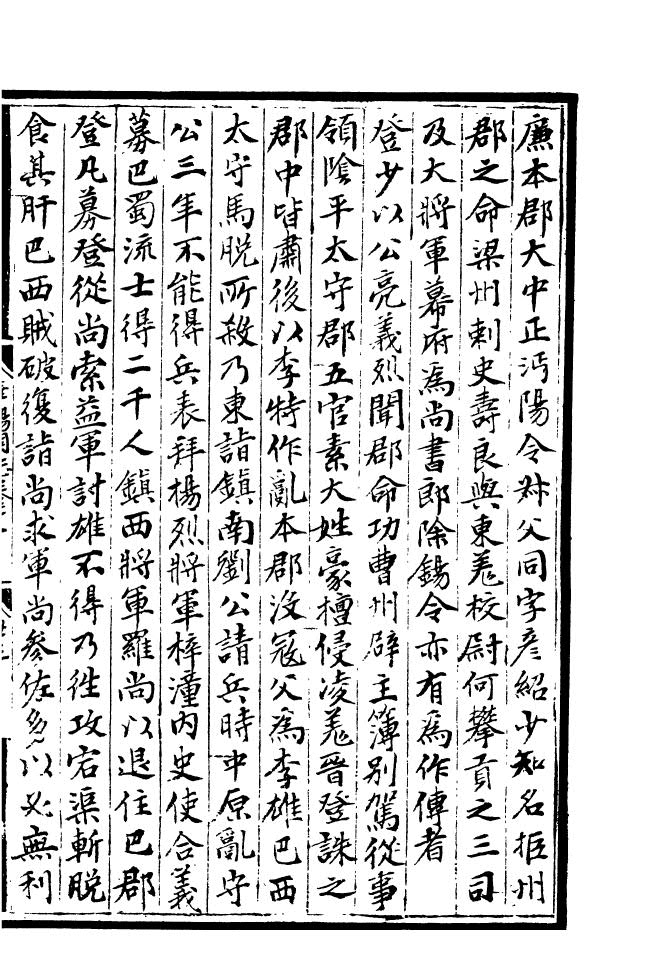 廉本郡大中正沔陽令叔父同字彦紹少知名拒州
郡之命梁州刺史壽良與東羗校尉何攀貢之三司
及大將軍幕府爲尚書郎除鍚令亦有爲作傳者
登少以公亮義烈聞郡命功曹州辟主簿别駕從事
領隂平太守郡五官素大姓豪擅侵凌羗晉登誅之
郡中皆肅後以李特作亂本郡没冦父爲李雄巴西
太守馬脱所殺乃東詣鎮南劉公請兵時中原亂守
公三年不能得兵表拜揚烈將軍梓潼内史使合義
募巴蜀流士得二千人鎮西將軍羅尚以退住巴郡
登凡募登從尚索益軍討雄不得乃徃攻宕渠斬脱
食其肝巴西賊破復詣尚求軍尚參佐多以必無利